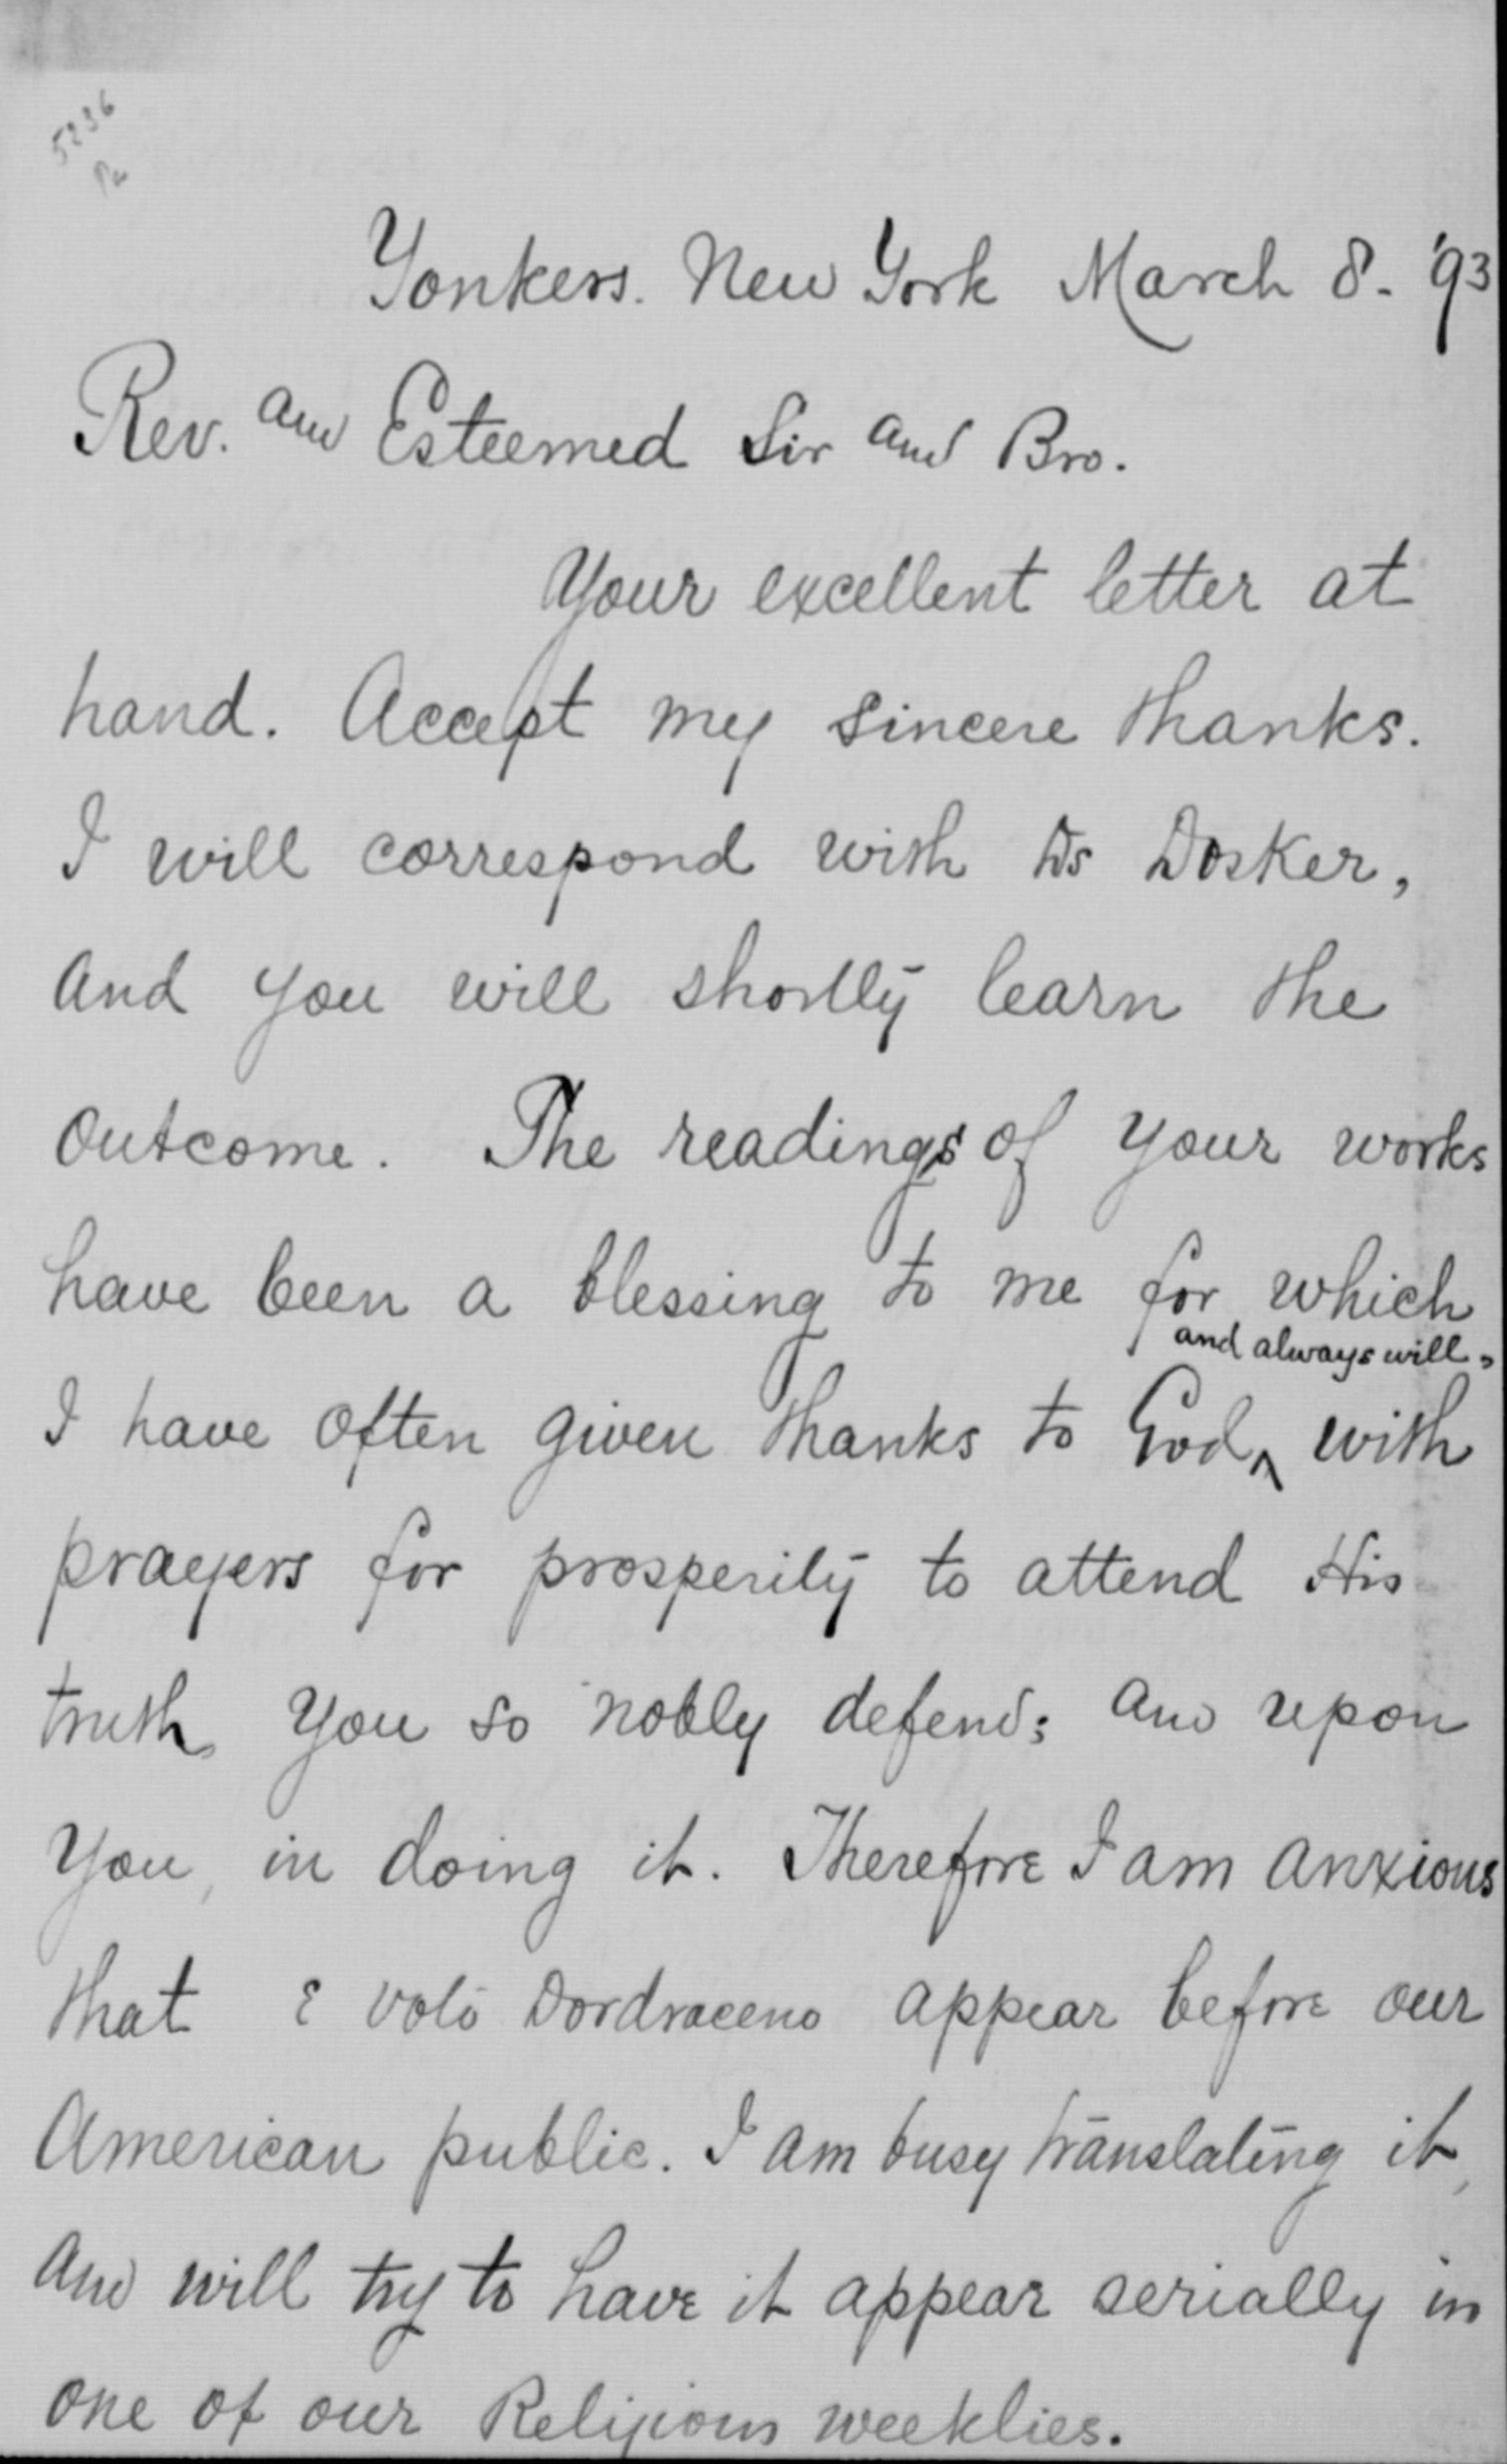 5236
Yonkers. New York March 8. '93
Rev. and Esteemed Sir and Bro.
Your excellent letter at
hand. Accept my sincere thanks.
I will correspond with Ds Dosker,
and you will shortly learn the
outcome. The readings of your works
have been a blessing to me for which
and always will,
I have often given thanks to God ^ with
prayers for prosperity to attend His
truth you so nobly defend; and upon
you, in doing it. Therefore I am anxious
that E voto Dordraceno appear before our
American public. I am busy translating it,
and will try to have it appear serially in
one of our Religious weeklies.